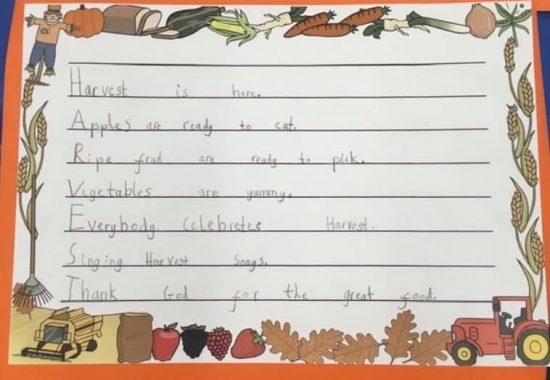 Harvest is here.
Apples are ready to eat.
Ripe fruit are ready to pick.
Vegetables are yummy.
Everybody Celebretes Harvest.
Singing Harvest Snogs.
Thank God for the great food.